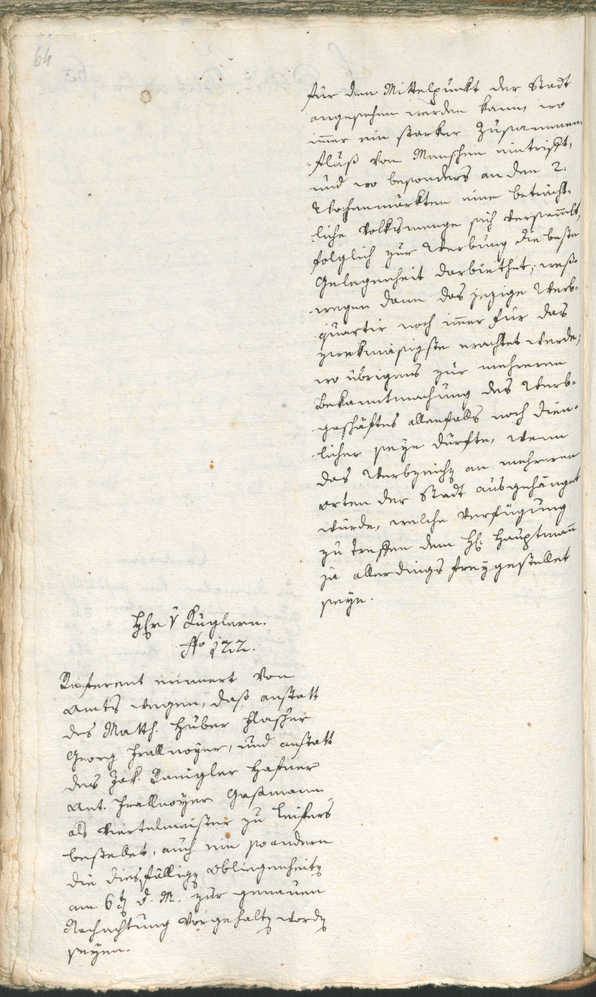 64
für dem Mittelpunkt der Stadt
angesehen werden kann, wo
imer ein starker Zusammen-
fluß von Menschen eintrifft,
und wo besonders an den 2.
Wochenmärkten eine beträcht-
liche Volksmenge sich versamlt,
folglich zur Werbung die beste
Gelegenheit darbiethet; weß-
wegen dann das jezige Werb-
quartir noch imer für das
zwekmäsigste erachtet werde;
wo übrigens zur mehreren
Bekanntmachung des Werb-
geschäftes allenfalls noch dien-
licher seyn dürfte, wenn
das Werbzeichen an mehreren
orten der Stadt ausgehänget
würde, welche Verfügung
zu treffen dem H: Hauptmann
ja allerdings freygestellet
seye.
Hr v Kuglern.
No 122.
Referent erinnert von
Amts wegen, daß anstatt
des Math. Huber
Georg, und anstatt
des Jak. Hafner
Ant. Gaßmann
als Viertelmeister zu Leifers
bestellet, auch ein so andern
die diesfälligen obliegenheiten
am 6t d. M. zur genauen
Nachachtung vorgehalten worden
seyen.